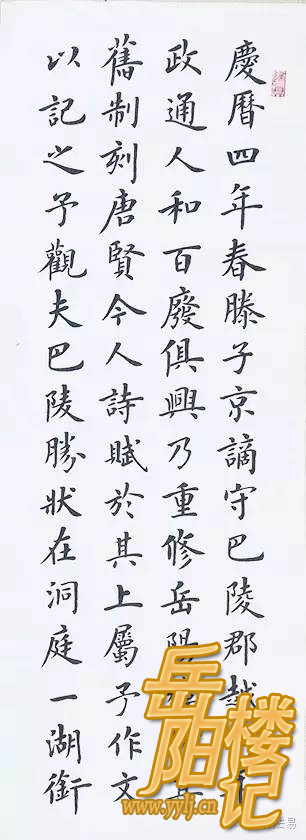 慶曆四年春滕子京謫守巴陵郡越
政通人和百廢俱興乃重修岳陽
舊制刻唐賢今人詩賦於其上屬予作文
以記之予觀夫巴陵勝狀在洞庭一湖銜
岳阳楼记
www.yylj.cn
易